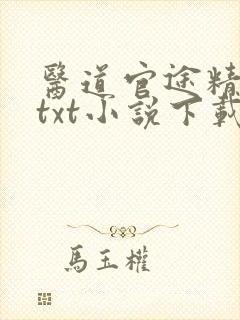 醫道官途精
txt小說下載
馬玉權